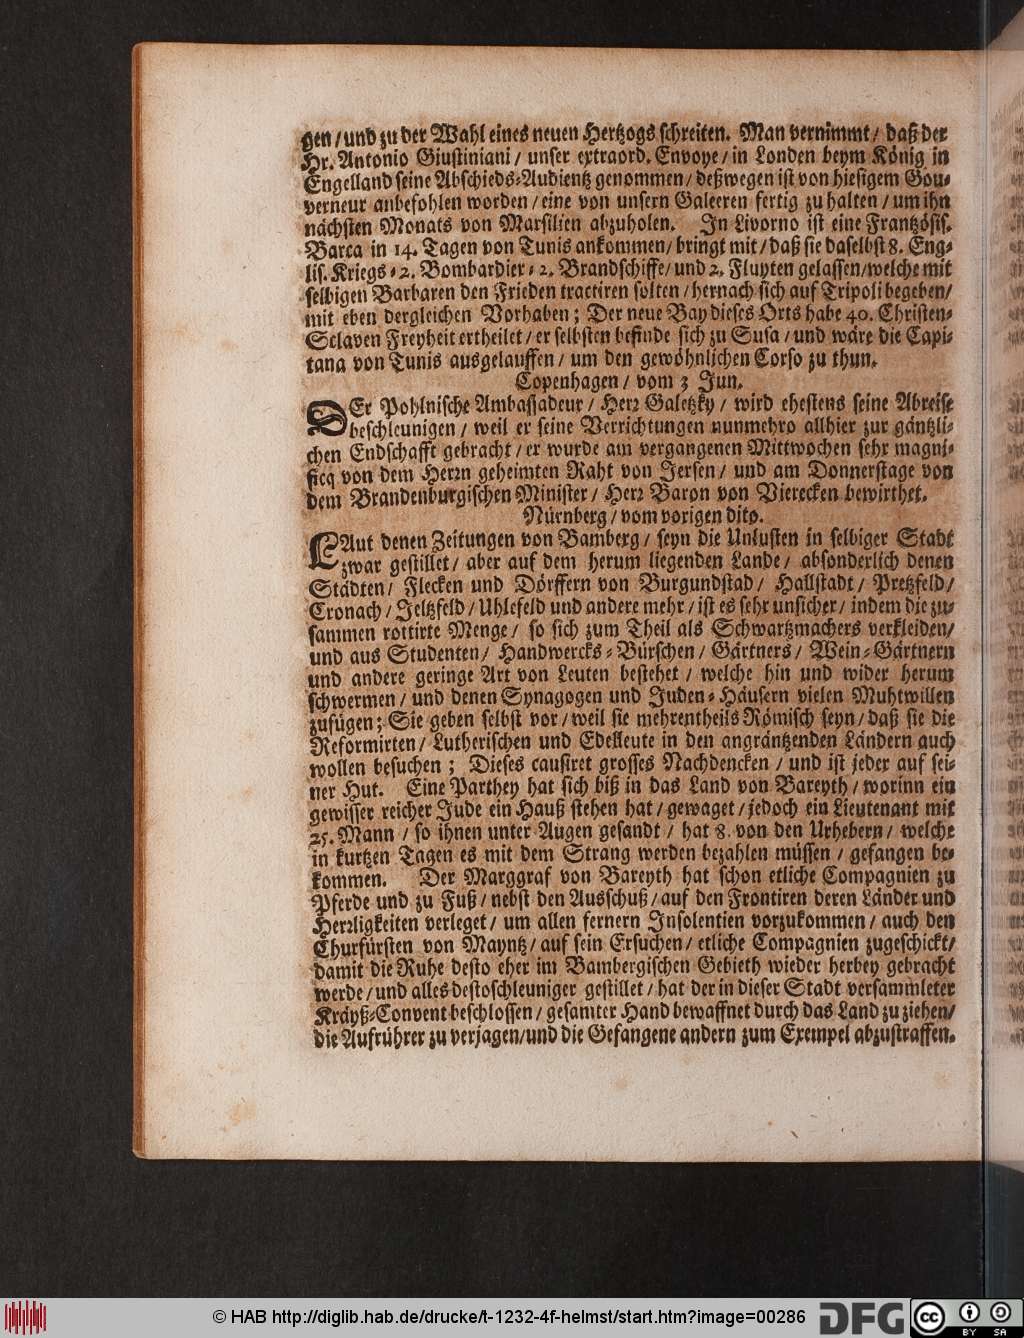 gen / und zu der Wahl eines neuen Hertzogs schreiten. Man vernimmt / daß der
Hr. Antonio Giustiniani / unser extraord. Envoye / in Londen beym König in
Engelland seine Abschieds-Audientz genommen / deßwegen ist von hiesigem Gou-
verneur anbefohlen worden / eine von unsern Galeeren fertig zu halten / um ihn
nächsten Monats von Marsilien abzuholen. In Livorno ist eine Frantzösis.
Barca in 14. Tagen von Tunis ankommen / bringt mit / daß sie daselbst 8. Eng-
lis. Kriegs- 2. Bombardier- 2. Brandschiffe / und 2. Fluyten gelassen / welche mit
selbigen Barbaren den Frieden tractiren solten / hernach sich auf Tripoli begeben /
mit eben dergleichen Vorhaben ; Der neue Bay dieses Orts habe 40. Christen-
Sclaven Freyheit ertheilet / er selbsten befinde sich zu Susa / und wäre die Capi-
tana von Tunis ausgelauffen / um den gewöhnlichen Corso zu thun.
Copenhagen / vom 3 Jun.
DEr Pohlnische Ambassadeur / Herr Galetzky / wird ehestens seine Abreise
beschleunigen / weil er seine Verrichtungen nunmehro allhier zur gäntzli-
chen Endschafft gebracht / er wurde am vergangenen Mittwochen sehr magni-
ficq von dem Herrn geheimten Raht von Jersen / und am Donnerstage von
dem Brandenburgischen Minister / Herr Baron von Vierecken bewirthet.
Nürnberg / vom vorigen dito.
LAut denen Zeitungen von Bamberg / seyn die Unlusten in selbiger Stadt
zwar gestillet / aber auf dem herum liegenden Lande / absonderlich denen
Städten / Flecken und Dörffern von Burgundstad / Hallstadt / Pretzfeld /
Cronach / Jeltzfeld / Uhlefeld und andere mehr / ist es sehr unsicher / indem die zu-
sammen rottirte Menge / so sich zum Theil als Schwartzmachers verkleiden /
und aus Studenten / Handwercks-Bürschen / Gärtners / Wein-Gärtnern
und andere geringe Art von Leuten bestehet / welche hin und wider herum
schwermen / und denen Synagogen und Juden-Häusern vielen Muhtwillen
zufügen ; Sie geben selbst vor / weil sie mehrentheils Römisch seyn / daß sie die
Reformirten / Lutherischen und Edelleute in den angräntzenden Ländern auch
wollen besuchen ; Dieses causiret grosses Nachdencken / und ist jeder auf sei-
ner Hut. Eine Parthey hat sich biß in das Land von Bareyth / worinn ein
gewisser reicher Jude ein Hauß stehen hat / gewaget / jedoch ein Lieutenant mit
25. Mann / so ihnen unter Augen gesandt / hat 8. von den Urhebern / welche
in kurtzen Tagen es mit dem Strang werden bezahlen müssen / gefangen be-
kommen. Der Marggraf von Bareyth hat schon etliche Compagnien zu
Pferde und zu Fuß / nebst den Ausschuß / auf den Frontiren deren Länder und
Herrligkeiten verleget / um allen fernern Insolentien vorzukommen / auch den
Churfürsten von Mayntz / auf sein Ersuchen / etliche Compagnien zugeschickt /
damit die Ruhe desto eher im Bambergischen Gebieth wieder herbey gebracht
werde / und alles destoschleuniger gestillet / hat der in dieser Stadt versammleter
Kräyß-Convent beschlossen / gesamter Hand bewaffnet durch das Land zu ziehen /
die Aufrührer zu verjagen / und die Gefangene andern zum Exempel abzustraffen.
© HAB http://diglib.hab.de/drucke/t-1232-4f-helmst/start.htm?image=00286
DFG
cc BY SA